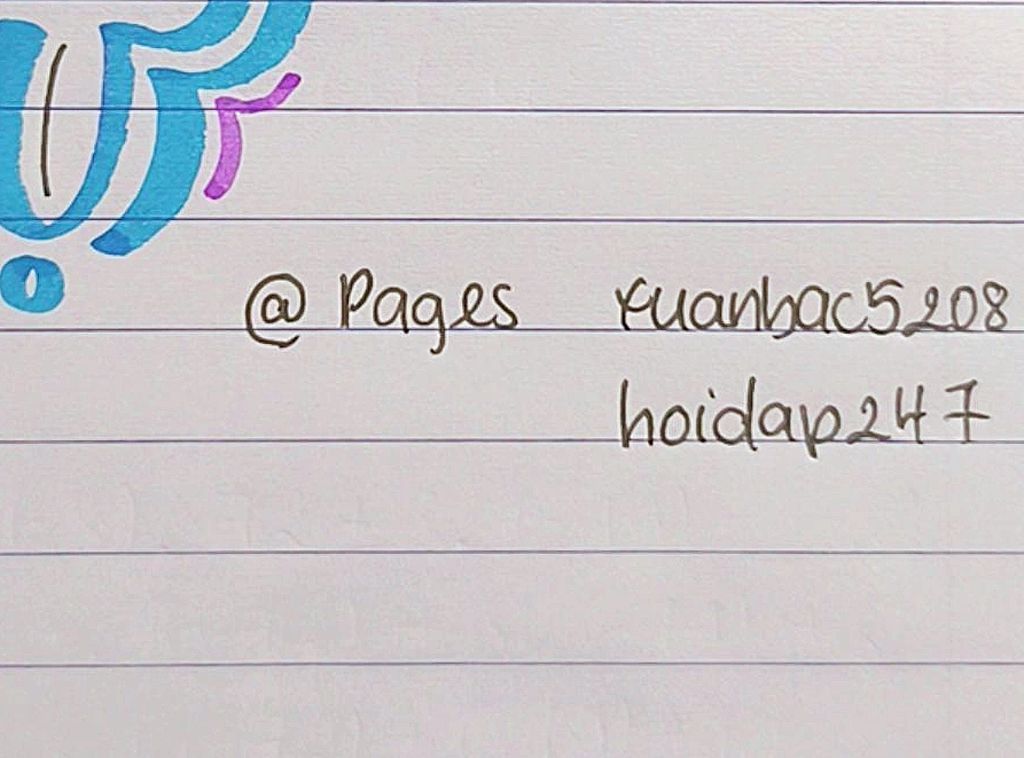 @ Pages xuanbac5208
hoidap247